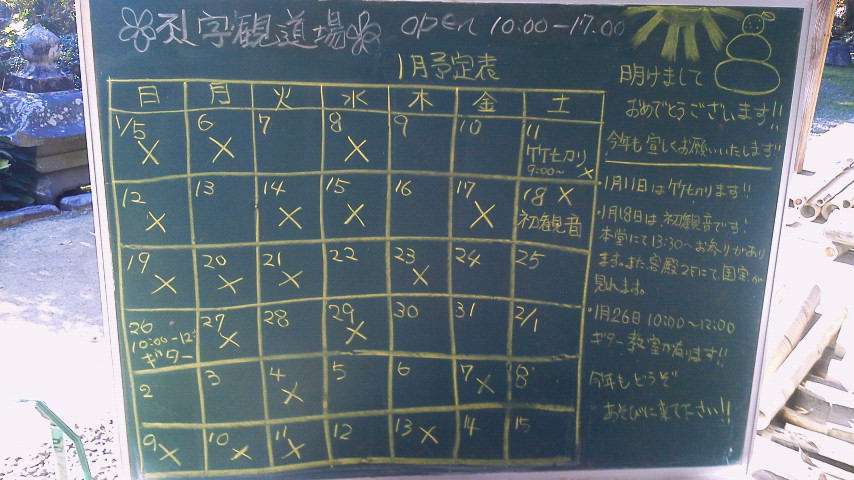 観道場 OPEN 10:00-17:00
1月予定表
日 月 火 水 木 金 土
1/5 × 6 × 7 8 × 9 10 11
竹七刀リ
9:00~ ×
12 × 13 14 × 15 × 16 17 × 18 ×
初観音
19 × 20 × 21 × 22 23 × 24 25
26 27 × 28 29 × 30 31 2/1
10:00-12
ギター
2 3 4 × 5 6 7 × 8
9 × 10 × 11 × 12 13 × 14 15
明けまして
おめでとうございます!!
今年も宜しくお願いいたします!!
・1月11日は竹切ります!
・1月18日は初観音です!
本堂にて13:30~お参りがあり
ます。また客殿2Fにて国宝が
見れます。
・1月26日10:00~12:00
ギター教室が有ります!!
今年もどうぞ
あそびに来て下さい!!